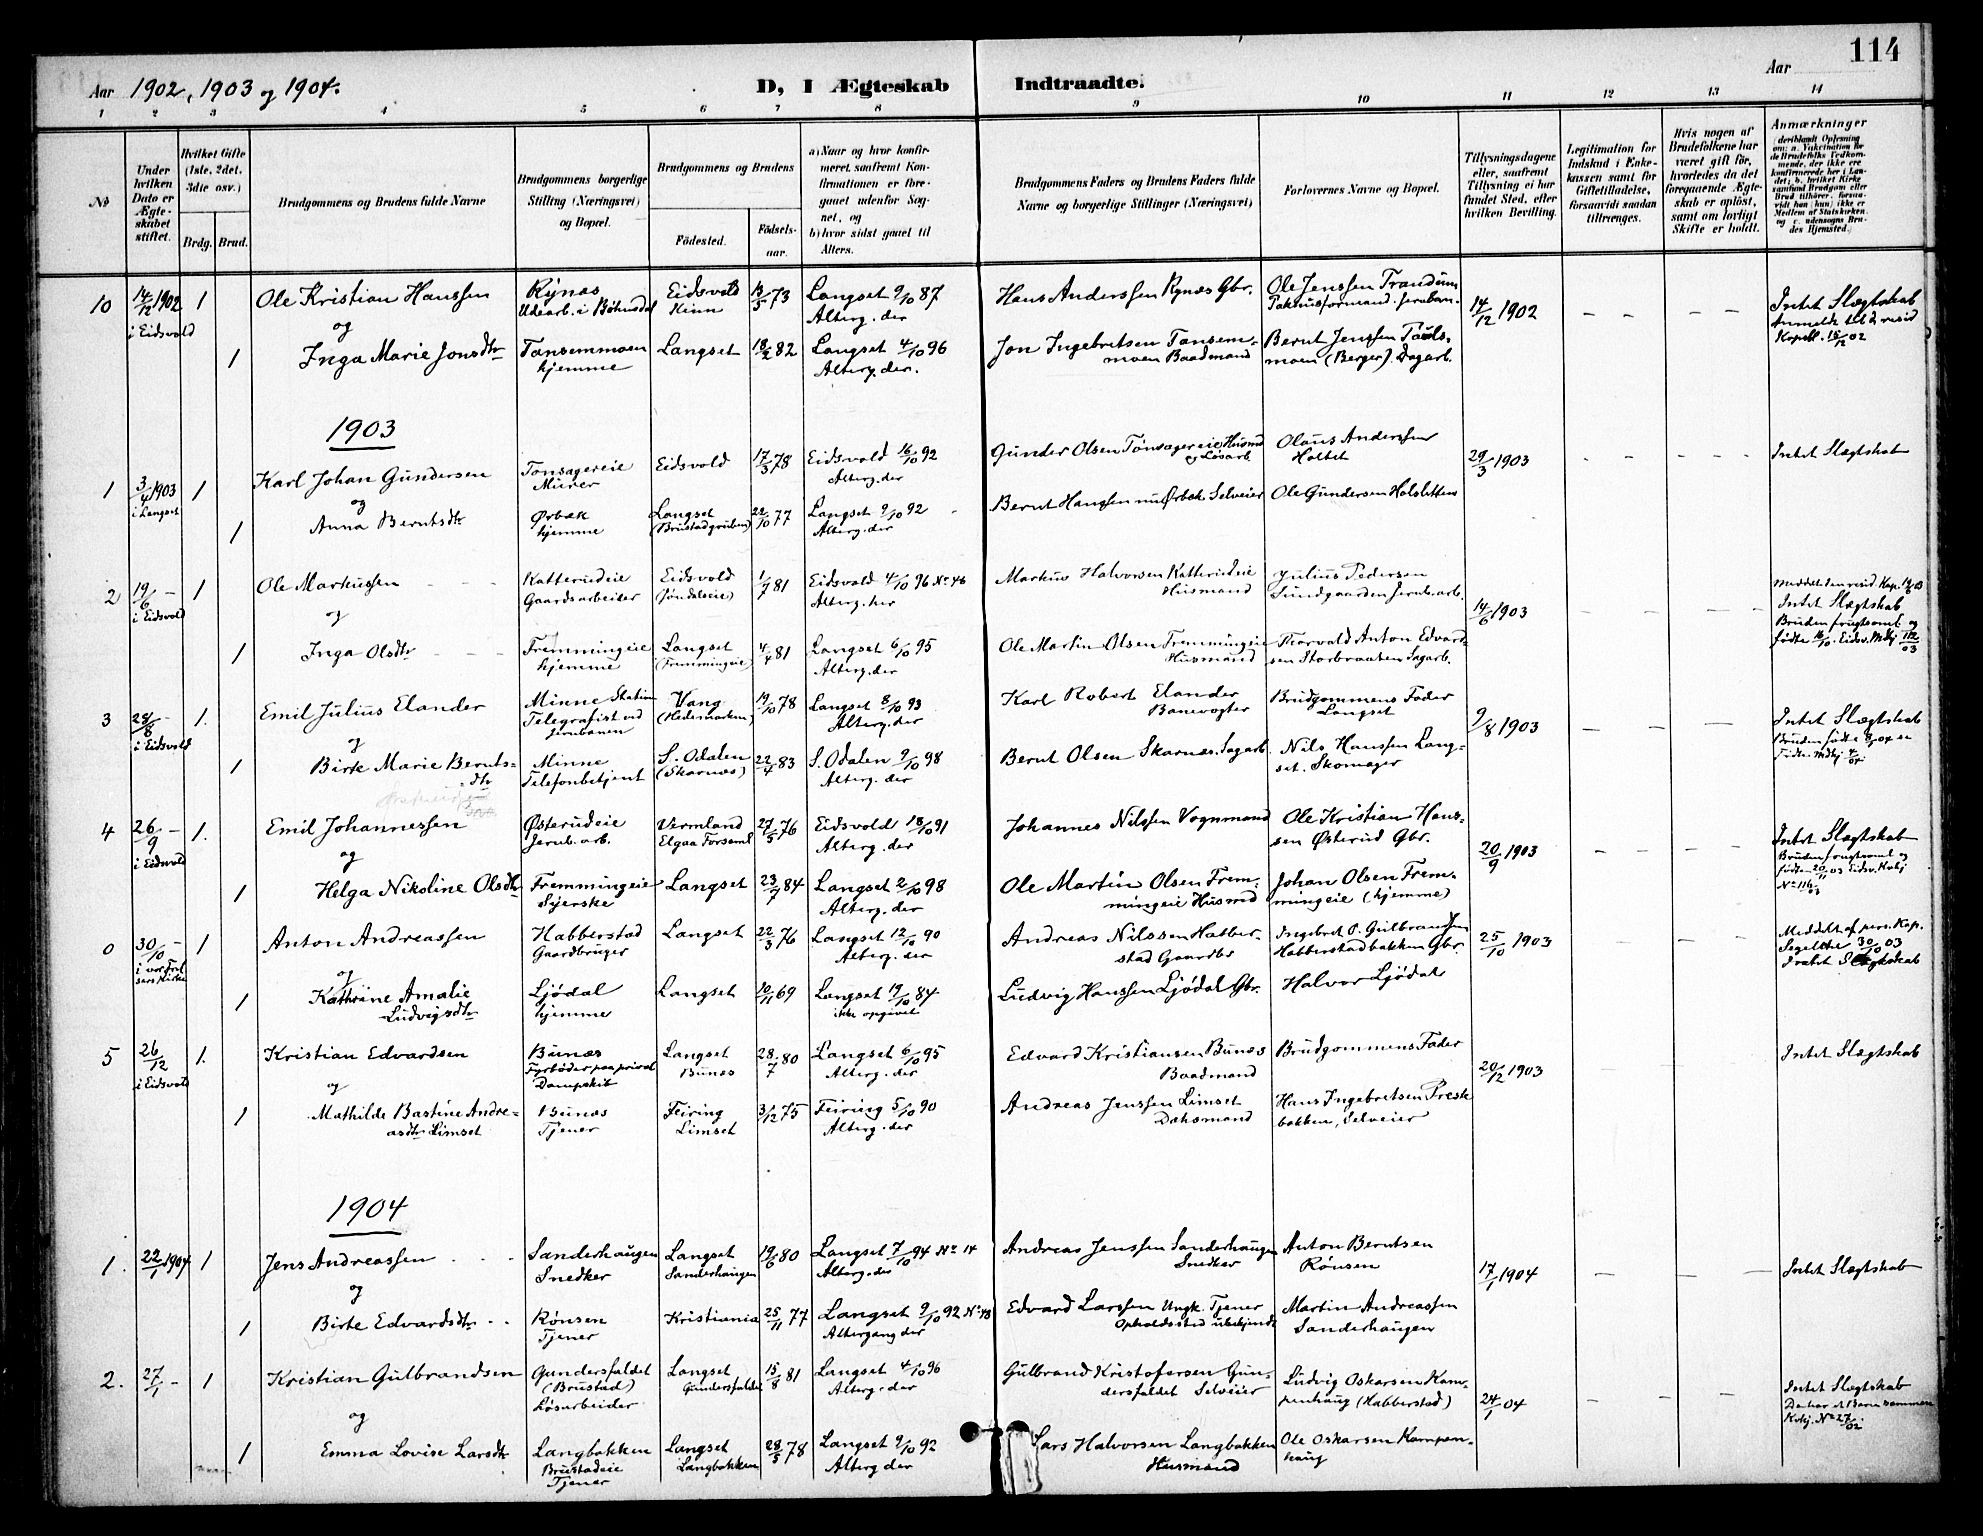 114
Aar 1902, 1903 og 1904.
D, I Ægteskab Indtraadte.
Aar
1 2 3 4 5 6 7 8 9 10 11 12 13 14
No
Under hvilken Dato er Ægteskabet stiftet.
Hvilket Gifte (1ste, 2det, 3die osv.)
Brdg. Brud.
Brudgommens og Brudens fulde Navne
Brudgommens borgerlige Stilling (Næringsvei) og Bopæl.
Brudgommens og Brudens
Födested.
Födselsaar.
a) Naar og hvor konfirmeret, saafremt Konfirmationen er foregaaet udenfor Sognet, og
b) hvor sidst gaaet til Alters.
Brudgommens Faders og Brudens Faders fulde Navne og borgerlige Stillinger (Næringsvei)
Forlovernes Navne og Bopæl.
Tillysningsdagene eller, saafremt Tillysning ei har fundet Sted, efter hvilken Bevilling.
Legitimation for Indskud i Enkekassen samt for Giftetilladelse, forsaavidt saadan tiltrænges.
Hvis nogen af Brudefolkene har været gift för, hvorledes da det foregaaende Ægteskab er oplöst, samt om lovligt Skifte er holdt.
Anmærkninger
10 14/12 1902 i Eidsvold 1 Ole Kristian Hanssen Rynæs Udearb. i Böhnsdal Eidsvold Kinn 13/5 73 Langset 9/10 87 Alterg. der Hans Anderssen Rynæs Gbr. Ole Jenssen Trandum 14/12 1902 – – – – Intet Slægtskab
og
1 Inga Marie Jonsdtr Tansemmoen hjemme Langset 18/2 82 Langset 4/10 96 Alterg. der. Jon Ingebretsen Tansemmoen Baadmand Bernt Jenssen (Berger). Dagarb.
1903
1 3/4 1903 i Langset 1 Karl Johan Gundersen Tønsagereie Murer Eidsvold 17/3 78 Eidsvold 16/10 92 Alterg. der Gunder Olsen Tønsagereie Husmd og Løsarb. Olaus Anderssen Holtet 29/3 1903 Intet Slægtskab
og
1 Anna Berntsdtr Ørbæk hjemme Langset (Brustadgruben) 22/10 77 Langset 9/10 92 Alterg. der Bernt Hanssen nu Ørbæk Selveier Ole Gundersen
2 19/6 – i Eidsvold 1 Ole Markussen Katterudeie Gaardsarbeider Eidsvold 1/7 81 Eidsvold 4/10 96 No 46 Alterg. her Markus Halvorsen Katterudeie Husmand Julius Pedersen Sundgaarden Jernb.arb. 14/6 1903 Intet Slægtskab Bruden frugtsoml. og
og
1 Inga Olsdtr Fremmingeie hjemme Langset (Fremmingeie) 4/4 81 Langset 6/10 95 Alterg. der Ole Martin Olsen Fremmingeie Husmand Torvald Anton Edvardsen Storbraaten Sagarb.
3 28/8 – i Eidsvold 1. Emil Julius Elander Minne Station Telegrafist ved Jernbanen Vang (Hedemarken) 19/10 78 Langset 8/10 93 Alterg. der Karl Robert Elander Banevogter Brudgommens Fader Langset 9/8 1903 Intet Slægtskab
og
1 Birte Marie Berntsdtr Minne Telefonbetjent S. Odalen (Skarnæs) 22/4 83 S. Odalen 9/10 98 Alterg. der Bernt Olsen Skarnæs. Sagarb. Nils Hanssen Langset. Skomager
4 26/9 – i Eidsvold 1. Emil Johannessen Østerudeie Jernb. arb. Vermland Elgaa Forsaml 27/5 76 Eidsvold 18/10 91 Alterg. der Johannes Nilssen Vognmand Ole Kristian Hanssen Østerud Gbr. 20/9 1903 Intet Slægtskab
og
1 Helga Nikoline Olsdtr Fremmingeie Syerske Langset 23/7 84 Langset 2/10 98 Alterg. der Ole Martin Olsen Fremmingeie Husmd Johan Olsen Fremmingeie (hjemme)
0 30/10 – i vor Frelsers Kirke 1 Anton Andreassen Habberstad Gaardbruger Langset 22/3 76 Langset 12/10 90 Alterg. der Andreas Nilssen Habberstad Gaardbr Ingebret O. Gulbrandsen Habberstadbakken Gbr. 25/10 1903 Meddelt af pers. Kap. 30/10 03 Intet Slægtskab
og
1 Kathrine Amalie Ludvigsdtr Ljødal hjemme Langset 10/11 69 Langset 19/10 84 ikke opgivet Ludvig Hanssen Ljødal Gbr. Halvor Ljødal
5 26/12 i Eidsvold 1. Kristian Edvardsen Bunæs Fyrbøder paa privat Dampskib Langset Bunæs 28/7 80 Langset 6/10 95 Alterg. der Edvard Kristiansen Bunæs Baadmand Brudgommens Fader 20/12 1903 Intet Slægtskab
og
1 Mathilde Bastine Andreasdtr Limset Bunæs Tjener Feiring Limset 3/12 75 Feiring 5/10 90 Alterg. der Andreas Jenssen Limset Dæksmand Hans Ingebretsen Prestbakken, Selveier
1904
1. 22/1 1904 1 Jens Andreassen Sanderhaugen Snedker Langset Sanderhaugen 19/6 80 Langset 7/10 94 No 14 Alterg. der Andreas Jenssen Sanderhaugen Snedker Anton Berntsen Rønsen 17/1 1904 Intet Slægtskab
og
1 Birte Edvardsdtr Rønsen Tjener Kristiania 25/11 77 Langset 9/10 92 No 48 Altergang der Edvard Larssen Ungk. Tjener Opholdssted ubekjendt Martin Andreassen Sanderhaugen
2. 27/1 – 1 Kristian Gulbrandsen Gundersfaldet (Brustad) Løsarbeider Langset Gundersfaldet 15/8 81 Langset 4/10 96 Alterg. der Gulbrand Kristofersen Gundersfaldet Selveier Ludvig Oskarsen Kampenhaug (Habberstad) 24/1 04 Intet Slægtskab De har et Barn sammen No 27/02
og
1 Emma Lovise Larsdtr Langbakken Brustadeie Tjener Langset Langbakken 28/5 78 Langset 9/10 92 Alterg der Lars Halvorsen Langbakken Husmand Ole Oskarsen Kampenhaug